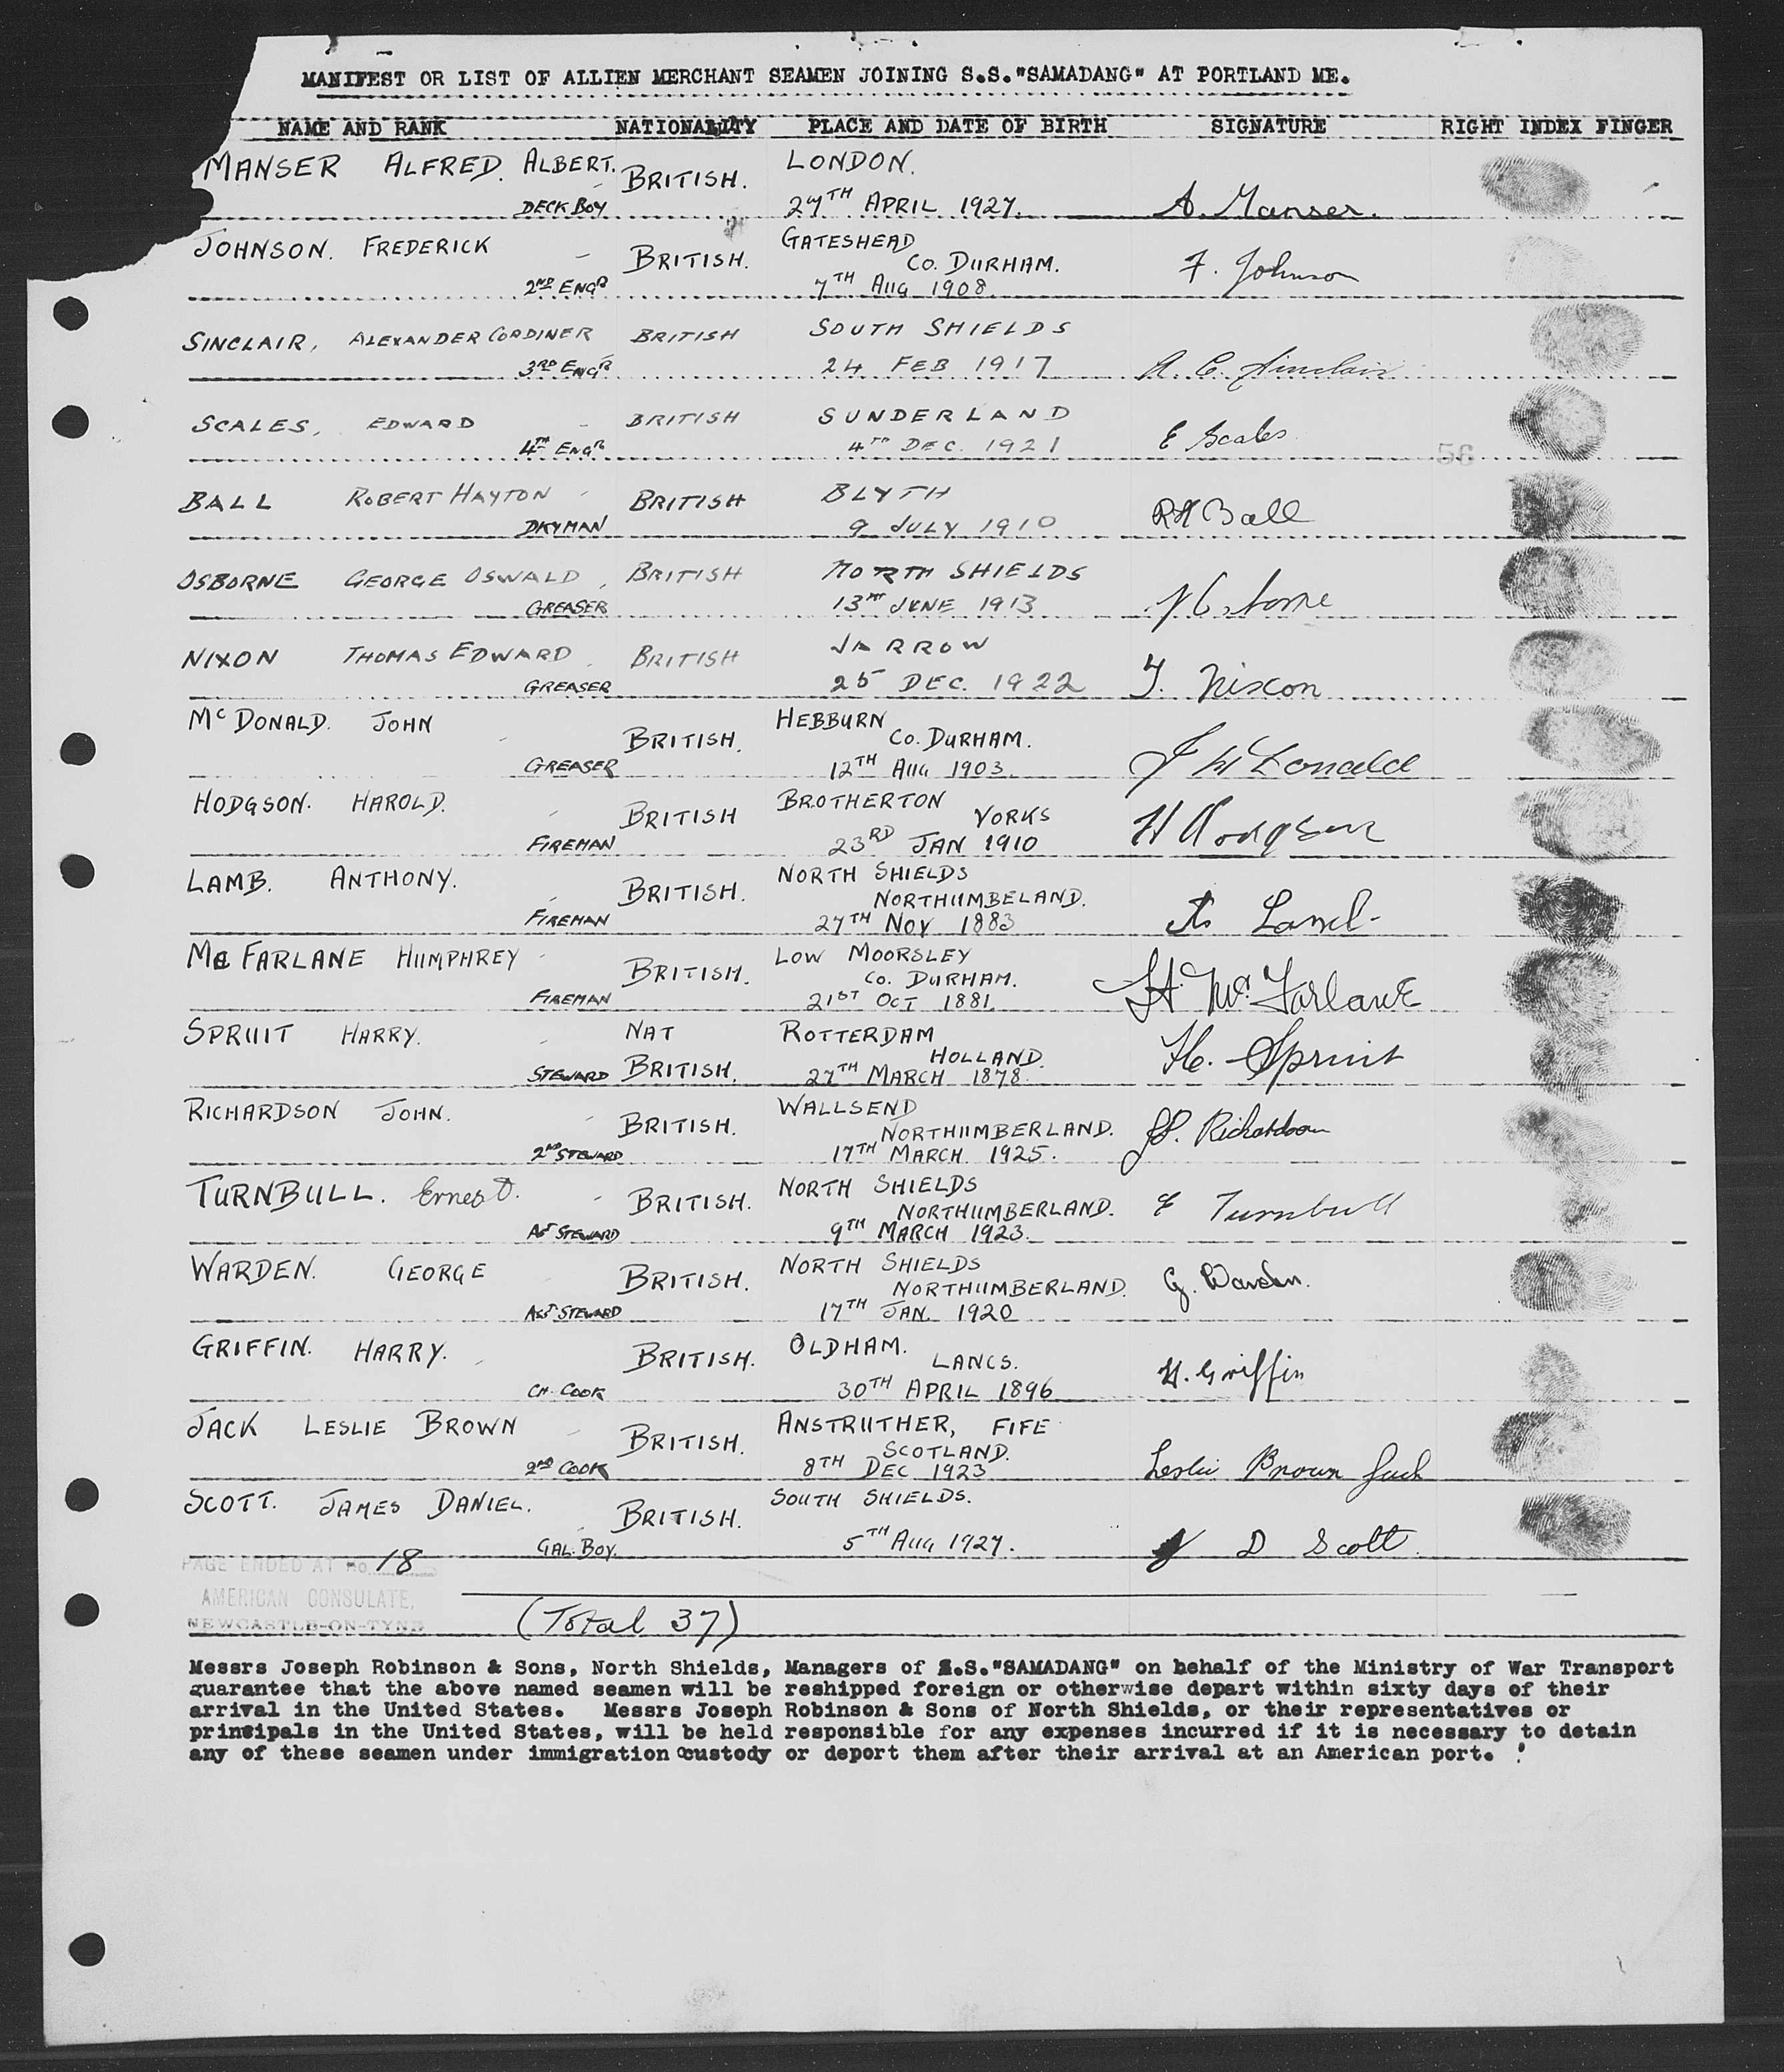 MANIFEST OR LIST OF ALLIEN MERCHANT SEAMEN JOINING S.S."SAMADANG" AT PORTLAND ME.
NAME AND RANK NATIONALITY PLACE AND DATE OF BIRTH SIGNATURE RIGHT INDEX FINGER
MANSER ALFRED. ALBERT. BRITISH. LONDON.
DECK BOY 27TH APRIL 1927. A. Manser.
JOHNSON. FREDERICK BRITISH. GATESHEAD
CO. DURHAM. F. Johnson
2ND ENGR 7TH AUG 1908.
SINCLAIR, ALEXANDER CORDINER BRITISH SOUTH SHIELDS
3RD ENGR 24 FEB 1917 A. C. Sinclair
SCALES, EDWARD BRITISH SUNDERLAND
4TH ENGR 4TH DEC. 1921 E Scales 56
BALL ROBERT HAYTON BRITISH BLYTH
DKYMAN 9 JULY 1910 RH Ball
OSBORNE GEORGE OSWALD BRITISH NORTH SHIELDS
GREASER 13TH JUNE 1913
NIXON THOMAS EDWARD BRITISH JARROW
GREASER 25 DEC. 1922 T. Nixon
McDONALD. JOHN BRITISH. HEBBURN
CO. DURHAM.
GREASER 12TH AUG 1903. J McDonald
HODGSON. HAROLD. BRITISH BROTHERTON
YORKS H Hodgson
FIREMAN 23RD JAN 1910
LAMB. ANTHONY. BRITISH. NORTH SHIELDS
NORTHUMBELAND.
FIREMAN 27TH NOV 1883 A Lamb
Mc FARLANE HUMPHREY BRITISH. LOW MOORSLEY
CO. DURHAM. H. Mc. Farlane
FIREMAN 21ST OCT 1881.
SPRUIT HARRY. NAT ROTTERDAM
HOLLAND. H. Spruit
STEWARD BRITISH. 27TH MARCH 1878.
RICHARDSON JOHN. BRITISH. WALLSEND
NORTHUMBERLAND. J. Richardson
2ND STEWARD 17TH MARCH. 1925.
TURNBULL. Ernest. BRITISH. NORTH SHIELDS
NORTHUMBERLAND. E Turnbull
AST STEWARD 9TH MARCH 1923.
WARDEN. GEORGE BRITISH. NORTH SHIELDS
NORTHUMBERLAND. G. Warden.
ASST STEWARD 17TH JAN. 1920
GRIFFIN. HARRY. BRITISH. OLDHAM.
LANCS. H. Griffin
CH. COOK 30TH APRIL 1896
JACK LESLIE BROWN BRITISH. ANSTRUTHER, FIFE
SCOTLAND.
2ND COOK 8TH DEC 1923 Leslie Brown Jack
SCOTT. JAMES DANIEL. BRITISH. SOUTH SHIELDS.
GAL. BOY. 5TH AUG 1927. J D Scott.
PAGE ENDED AT No. 18
AMERICAN CONSULATE,
NEWCASTLE-ON-TYNE
(Total 37)
Messrs Joseph Robinson & Sons, North Shields, Managers of S.S."SAMADANG" on behalf of the Ministry of War Transport
guarantee that the above named seamen will be reshipped foreign or otherwise depart within sixty days of their
arrival in the United States. Messrs Joseph Robinson & Sons of North Shields, or their representatives or
principals in the United States, will be held responsible for any expenses incurred if it is necessary to detain
any of these seamen under immigration custody or deport them after their arrival at an American port.